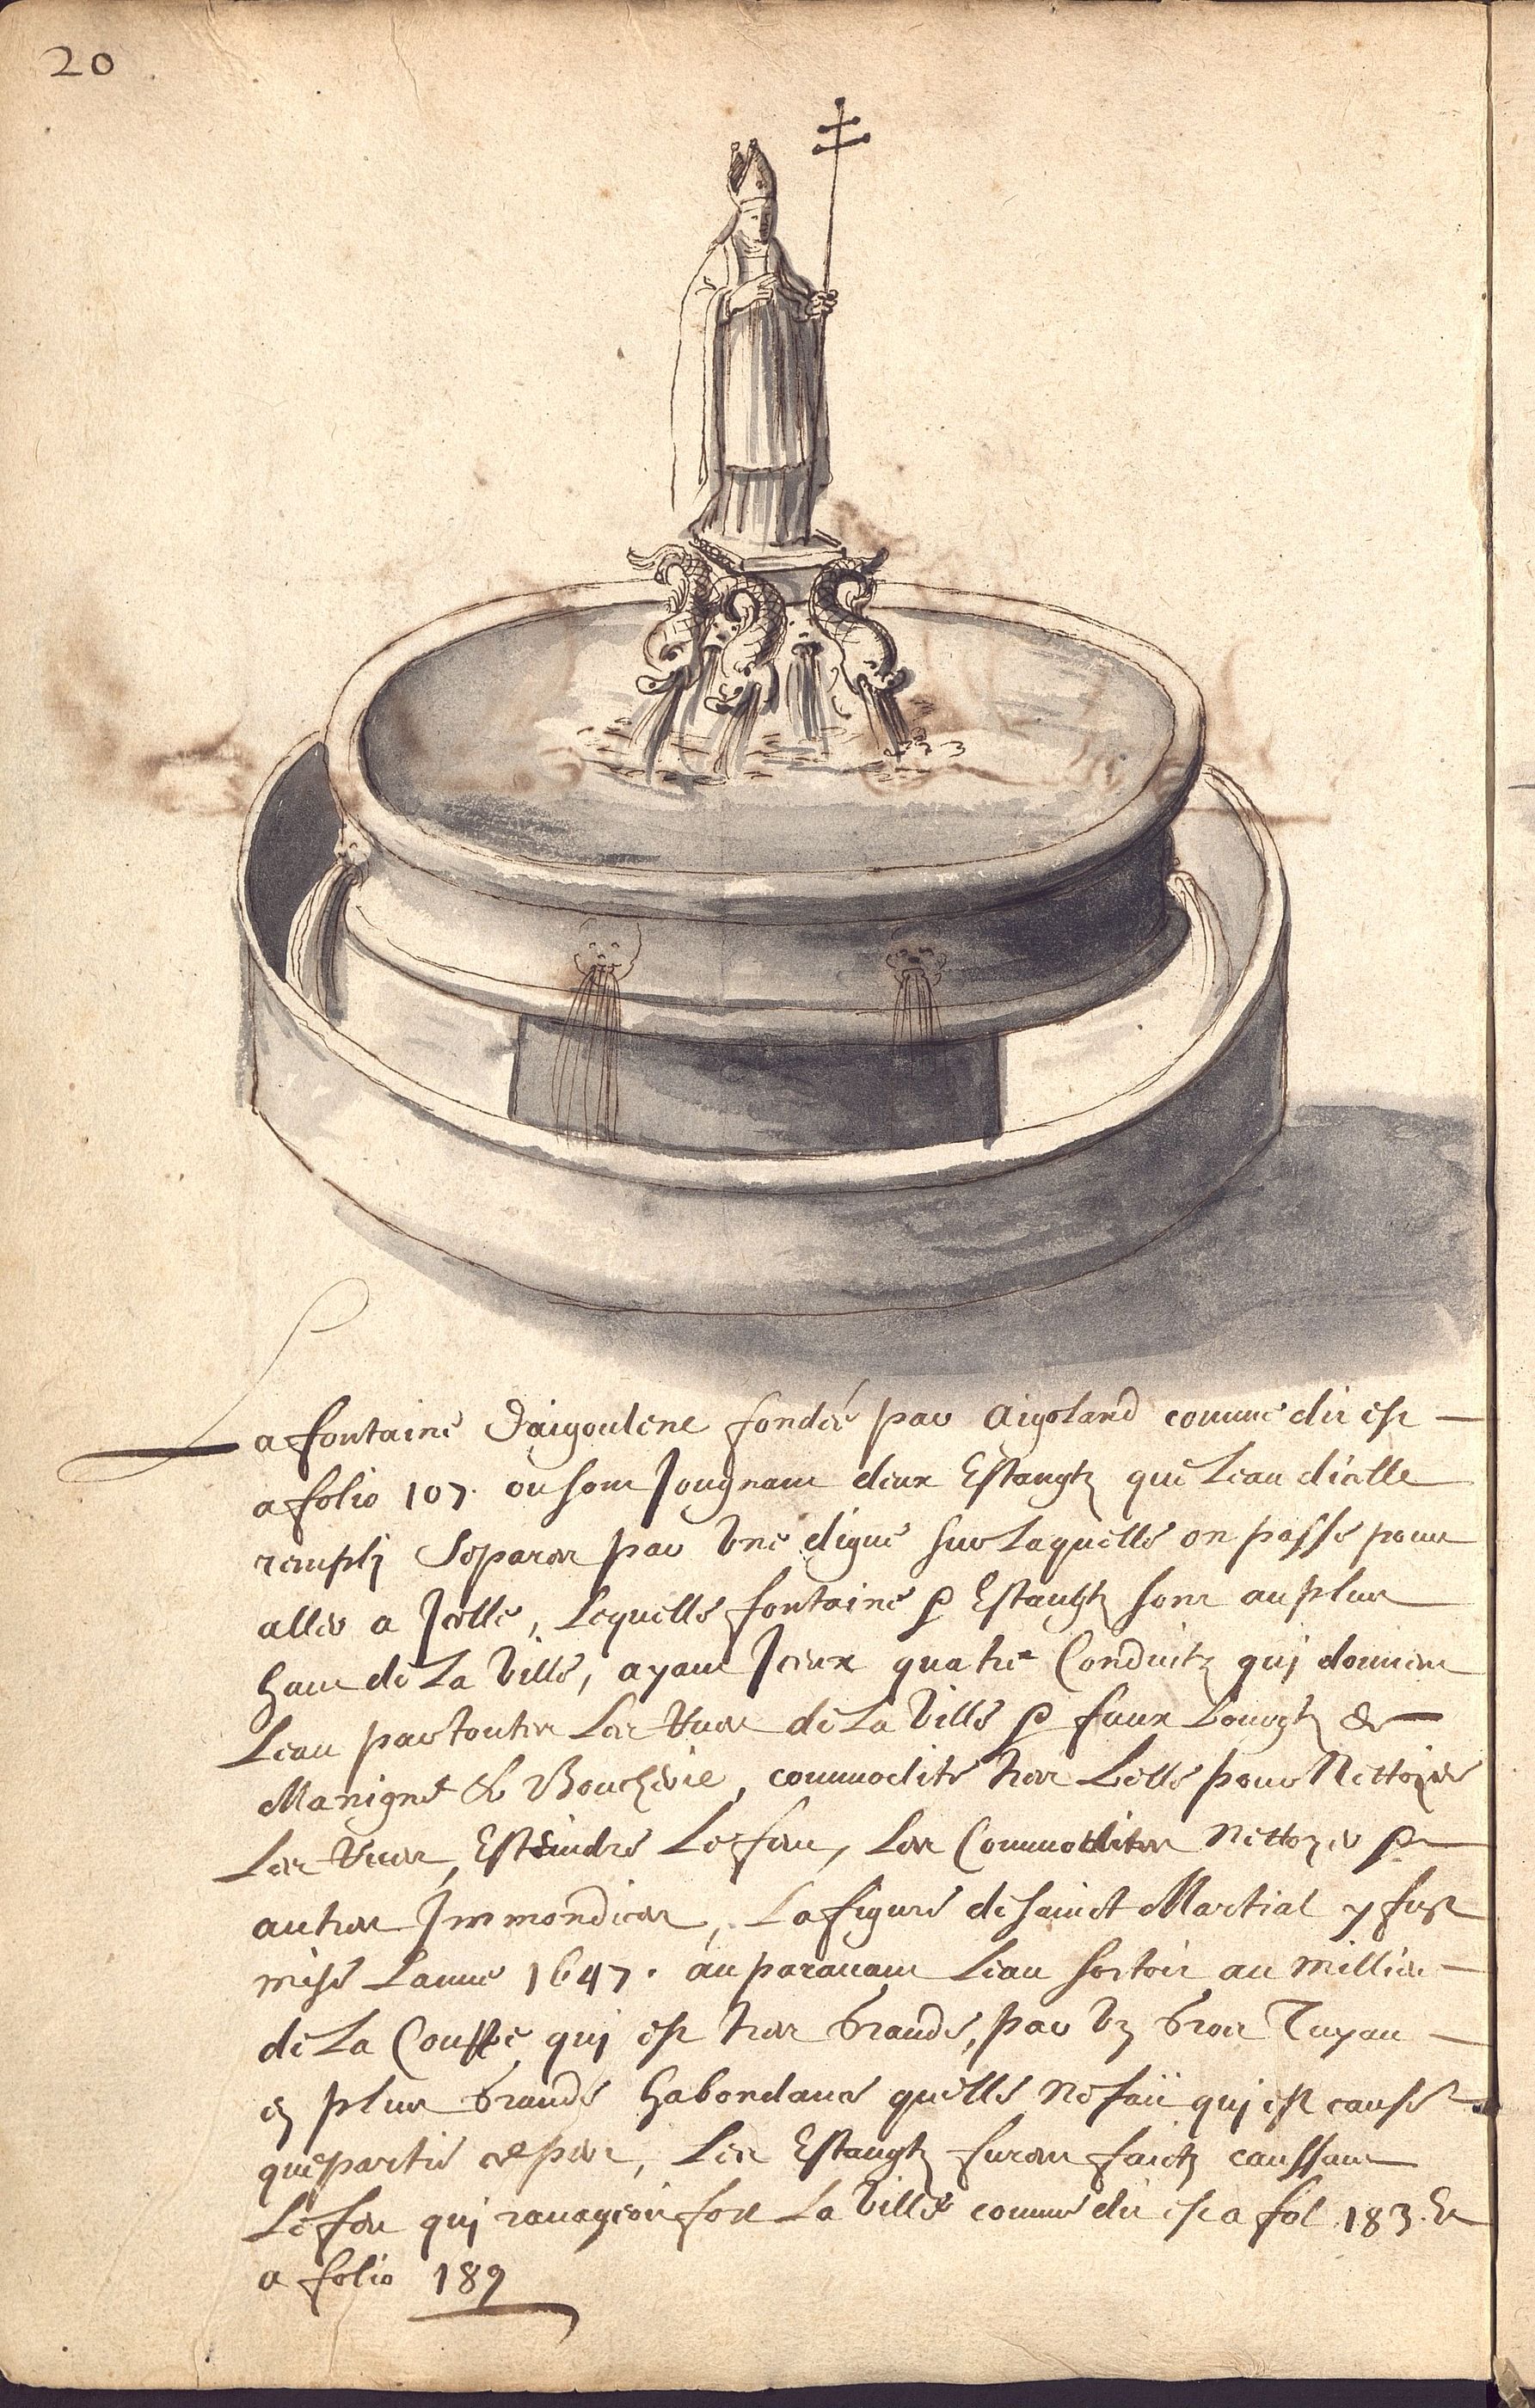 20
La fontaine daigoulene fondée par Aigoland comme dit est
a folio 107. ou sont Joygnant deux Estangtz que Leau dicelle
remply Separes par Une digue sur Laquelle on passe pour
aller a Jcelle, Lequelle fontaine & Estangtz sont au plus
haut de La Ville, ayant Jceux quatre Conduitz qui donnent
Leau par toutes Les Rues de La Ville & faux bourgtz de
Manigne & Boucherie, commodite tres belle pour Nettoyer
Les Rues, Esteindre Le feu, Les Commodites Nettoyer &
autres Jmmondices, La figure de sainct Martial y fust
mise Lanne 1647. auparavant Leau sortoit au millieu
de La Couppe qui est tres Grande, par Un Gros Tuyau
en plus Grande habondance quelle Ne faict qui est cause
que partie se pert, Les Estangtz furent faictz caussant
Le feu qui ravageoit fort La Ville comme dit est a fol 183. Et
a folio 189